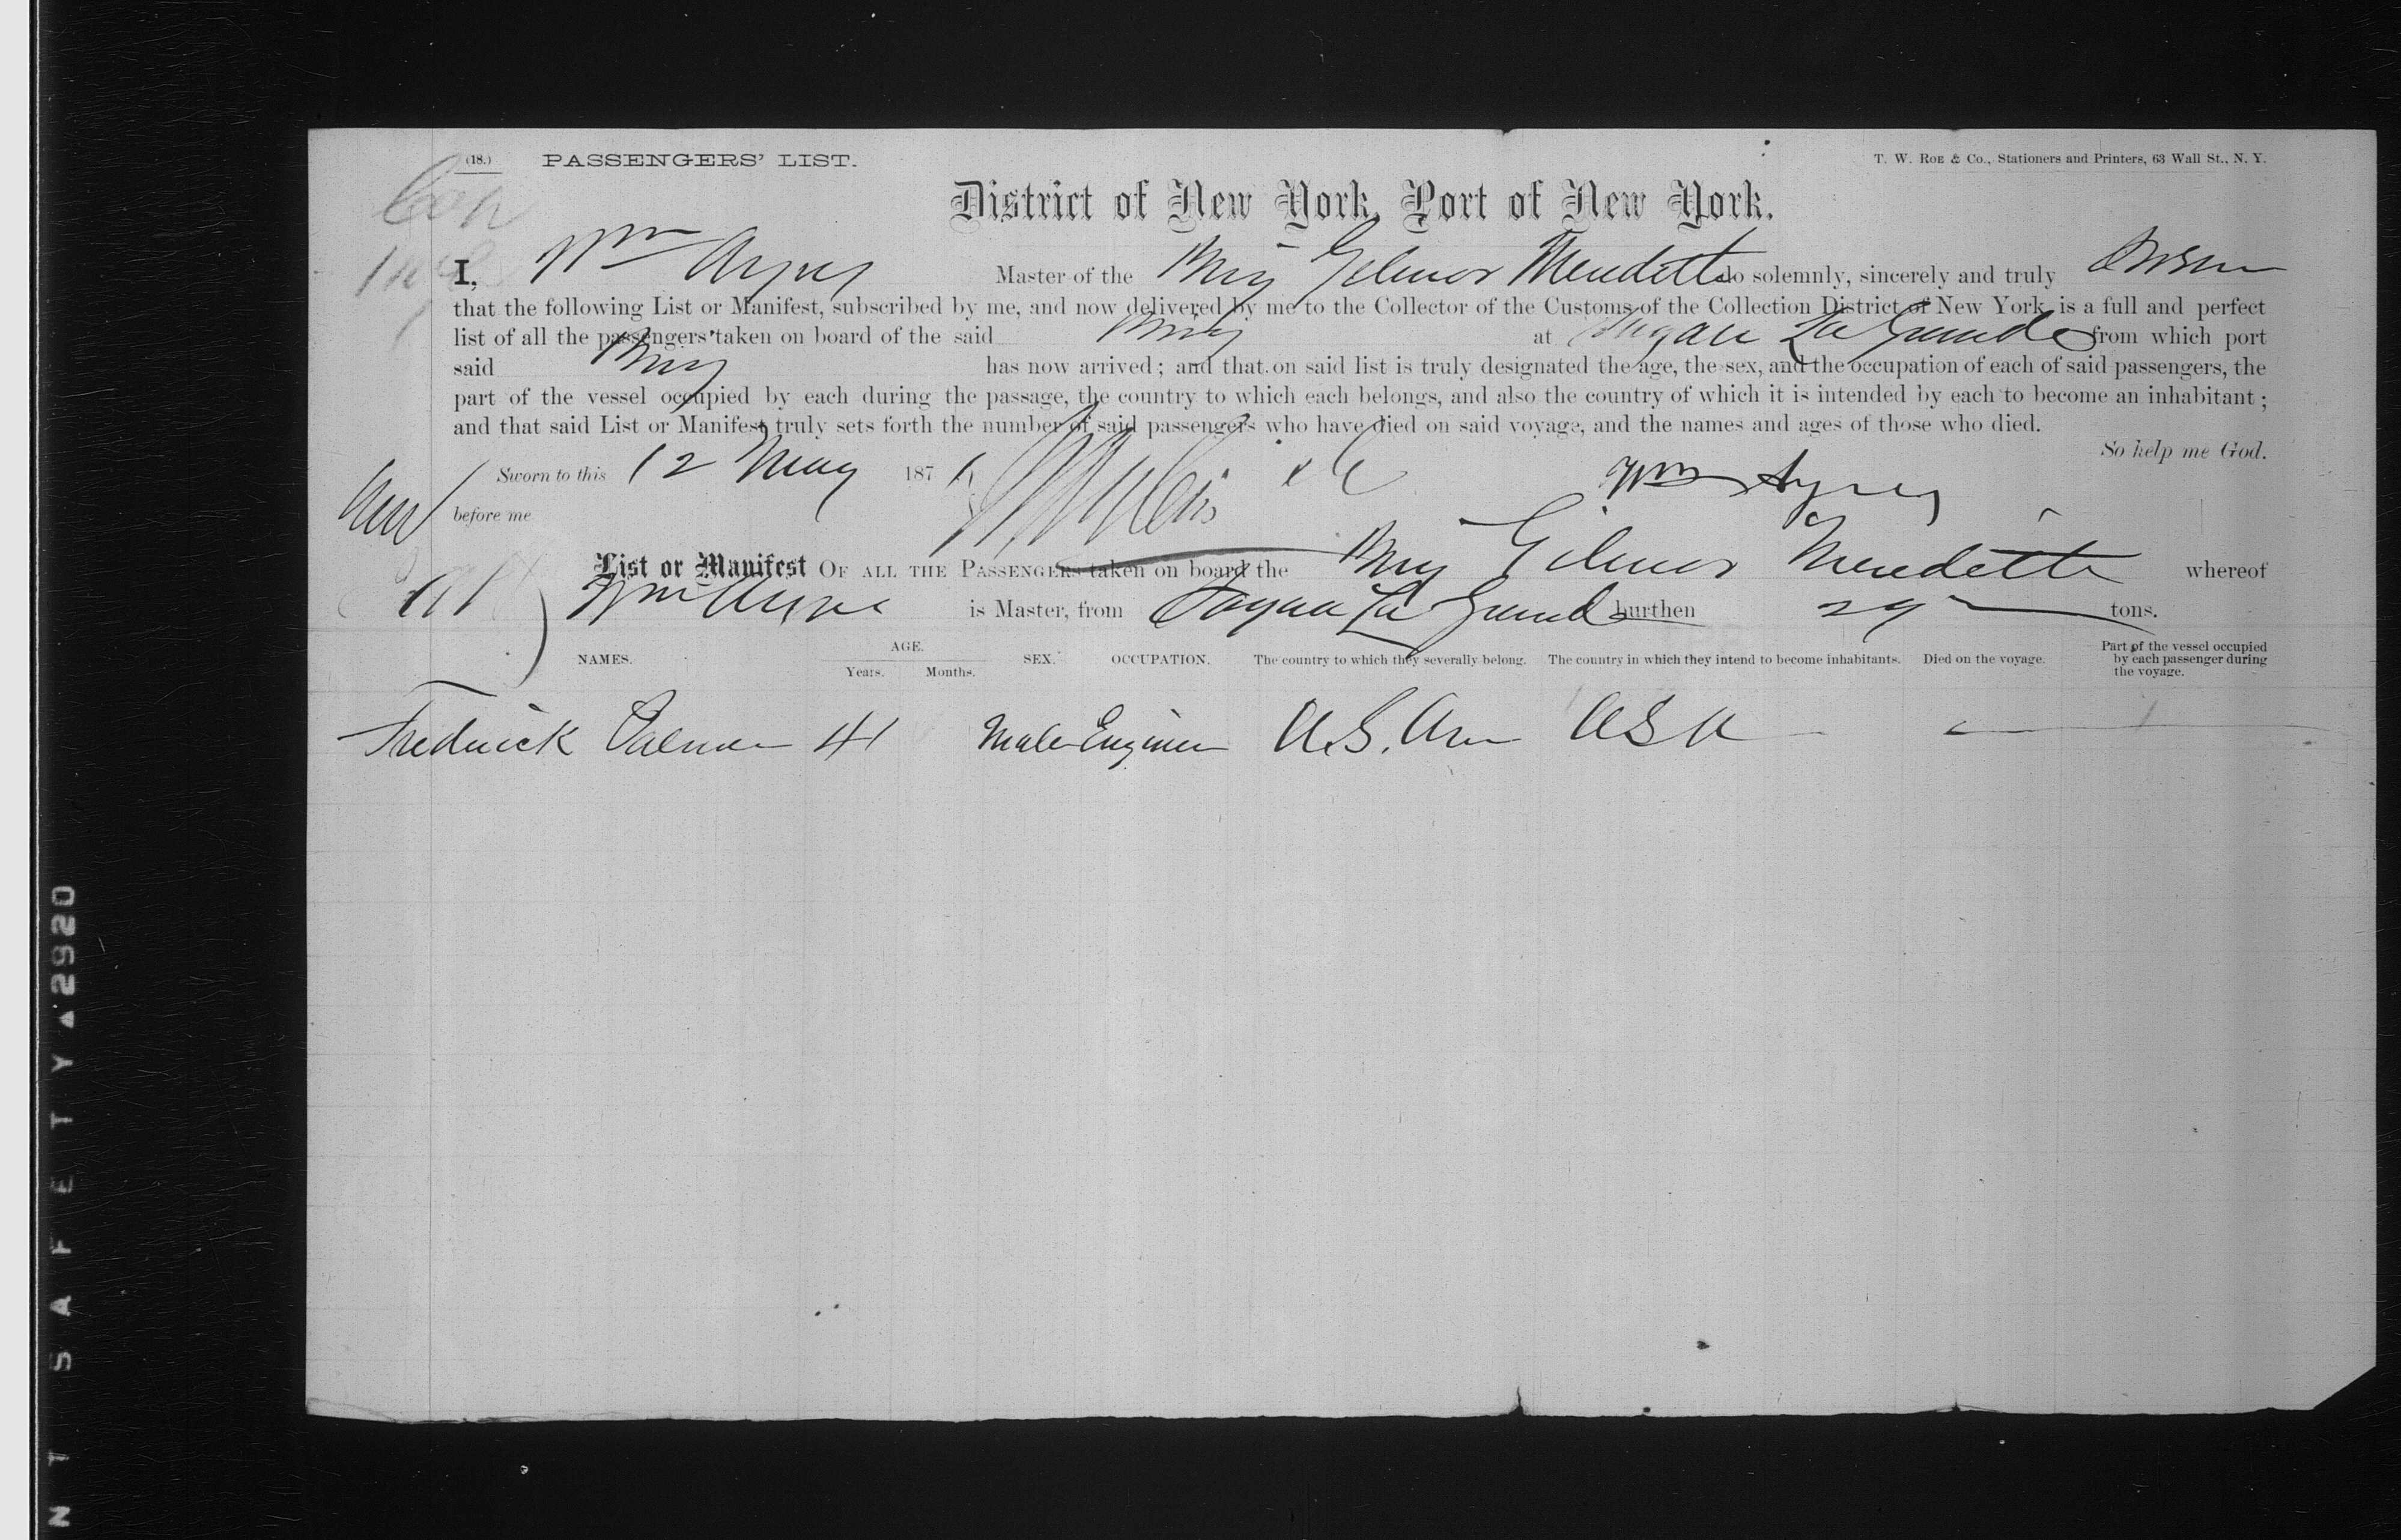 (18.) PASSENGERS' LIST. T. W. Roe & Co., Stationers and Printers, 63 Wall St., N. Y.
District of New York, Port of New York.
I, Wm Ayres Master of the Brig Gilmor Meredith do solemnly, sincerely and truly swear
that the following List or Manifest, subscribed by me, and now delivered by me to the Collector of the Customs of the Collection District of New York, is a full and perfect
list of all the passengers taken on board of the said Brig at Sagua La Grande from which port
said Brig has now arrived; and that on said list is truly designated the age, the sex, and the occupation of each of said passengers, the
part of the vessel occupied by each during the passage, the country to which each belongs, and also the country of which it is intended by each to become an inhabitant;
and that said List or Manifest truly sets forth the number of said passengers who have died on said voyage, and the names and ages of those who died.
So help me God.
Sworn to this 12 May 187
before me Wm Ayres
List or Manifest OF ALL THE PASSENGERS taken on board the Brig Gilmor Meredith whereof
Wm Ayres is Master, from Sagua La Grande burthen tons.
NAMES. AGE. Years. Months. SEX. OCCUPATION. The country to which they severally belong. The country in which they intend to become inhabitants. Died on the voyage. Part of the vessel occupied by each passenger during the voyage.
Fredrick Palmer 41 Male Engineer U.S. Am U S A
NT SAFETY▲2920